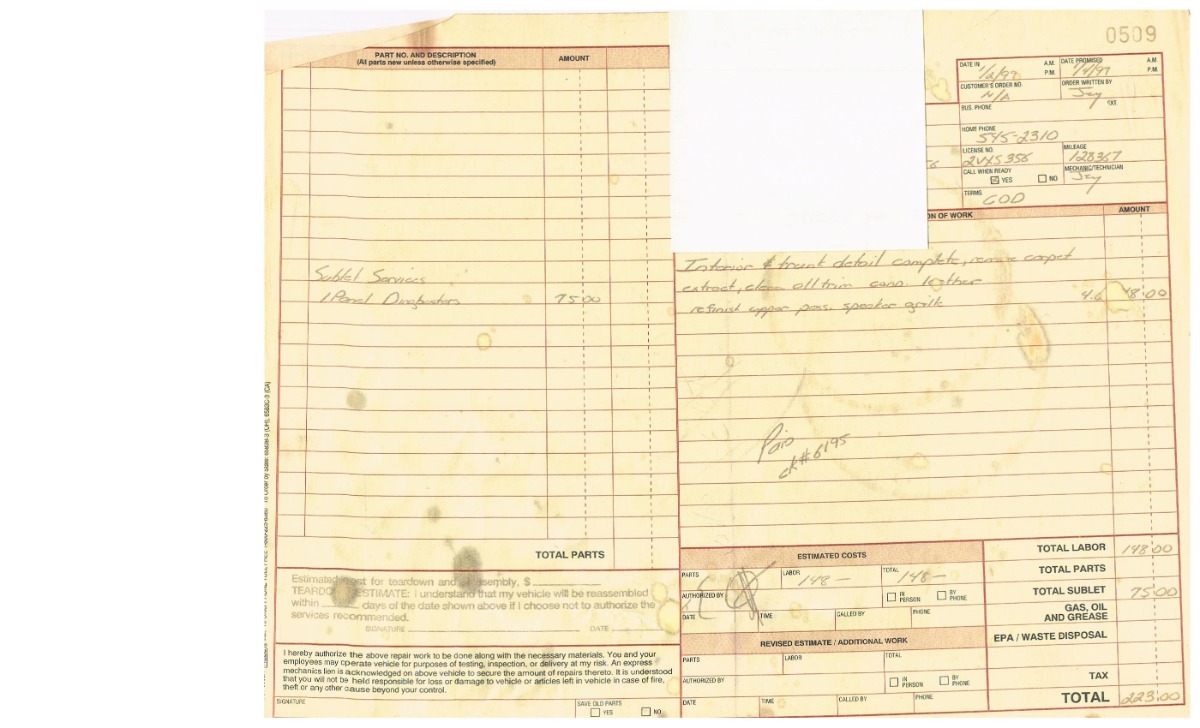 0509
PART NO. AND DESCRIPTION
(All parts new unless otherwise specified)
AMOUNT
DATE IN
1/2/97
A.M.
P.M.
DATE PROMISED
1/4/97
A.M.
P.M.
CUSTOMER'S ORDER NO.
N/A
ORDER WRITTEN BY
Jay
BUS. PHONE
EXT.
HOME PHONE
545-2310
LICENSE NO.
2VXS356
MILEAGE
128367
CALL WHEN READY
YES
NO
MECHANIC/TECHNICIAN
Jay
TERMS
COD
ON OF WORK
AMOUNT
Interior & trunk detail complete, remove carpet
extract, clean all trim cond. leather
refinish upper pass. speaker grille
Sublet Services
1 Panel Dingbusters 75 00
Paid
ck# 6195
TOTAL PARTS
Estimated cost for teardown and assembly, $
TEARDOWN ESTIMATE: I understand that my vehicle will be reassembled
within days of the date shown above if I choose not to authorize the
services recommended.
SIGNATURE DATE
I hereby authorize the above repair work to be done along with the necessary materials. You and your
employees may operate vehicle for purposes of testing, inspection, or delivery at my risk. An express
mechanics lien is acknowledged on above vehicle to secure the amount of repairs thereto. It is understood
that you will not be held responsible for loss or damage to vehicle or articles left in vehicle in case of fire,
theft or any other cause beyond your control.
SIGNATURE
SAVE OLD PARTS
YES NO
ESTIMATED COSTS
PARTS
LABOR
148 —
TOTAL
148 —
AUTHORIZED BY
IN PERSON
BY PHONE
DATE TIME CALLED BY PHONE
REVISED ESTIMATE / ADDITIONAL WORK
PARTS LABOR TOTAL
AUTHORIZED BY
IN PERSON
BY PHONE
DATE TIME CALLED BY PHONE
TOTAL LABOR 148 00
TOTAL PARTS
TOTAL SUBLET 75 00
GAS, OIL
AND GREASE
EPA / WASTE DISPOSAL
TAX
TOTAL 223.00